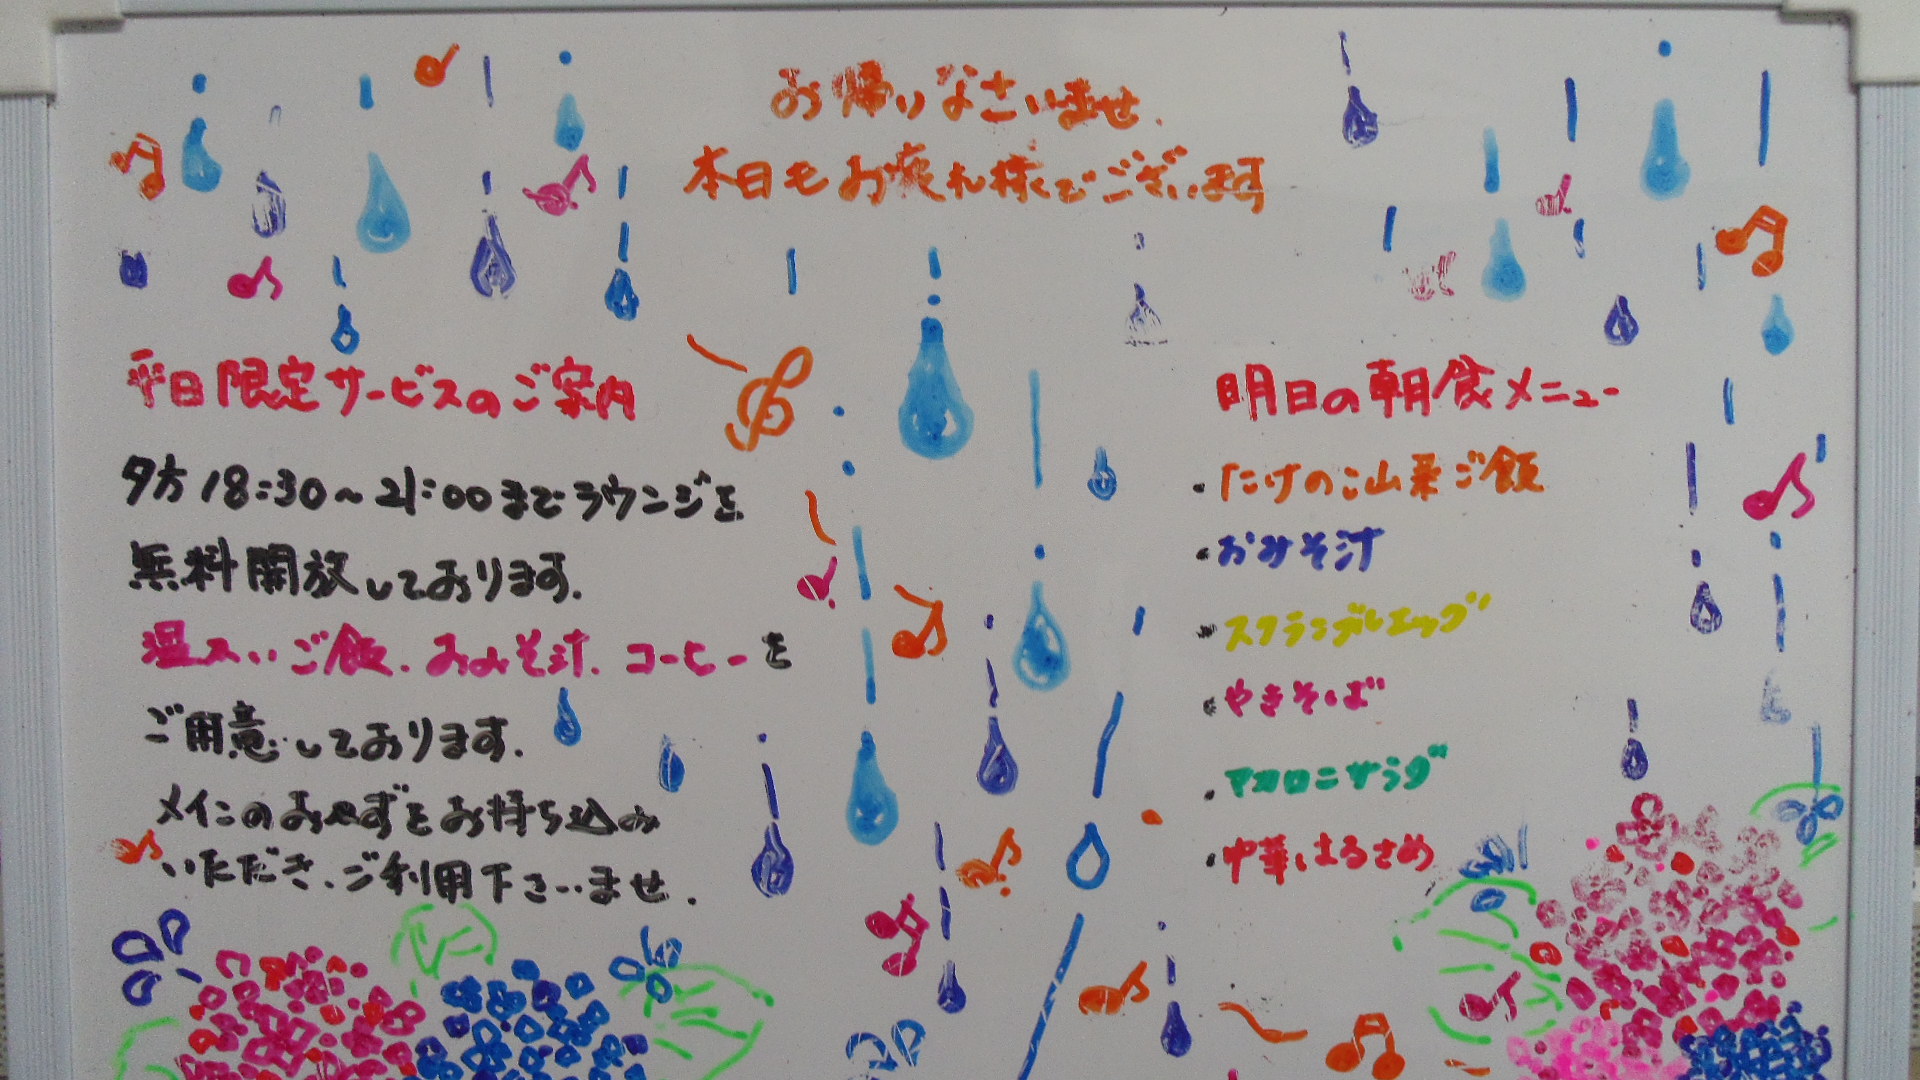 お帰りなさいませ.
本日もお疲れ様でございます
平日限定サービスのご案内
夕方18:30～21:00までラウンジを
無料開放しております.
温スいご飯.おみそ汁.コーヒーを
ご用意しております.
メインのおかずをお持ち込み
いただき、ご利用下さいませ.
明日の朝食メニュー
・たけのこ山菜ご飯
・おみそ汁
・スクランブルエッグ
・やきそば
・マカロニサラダ
・中華はるさめ